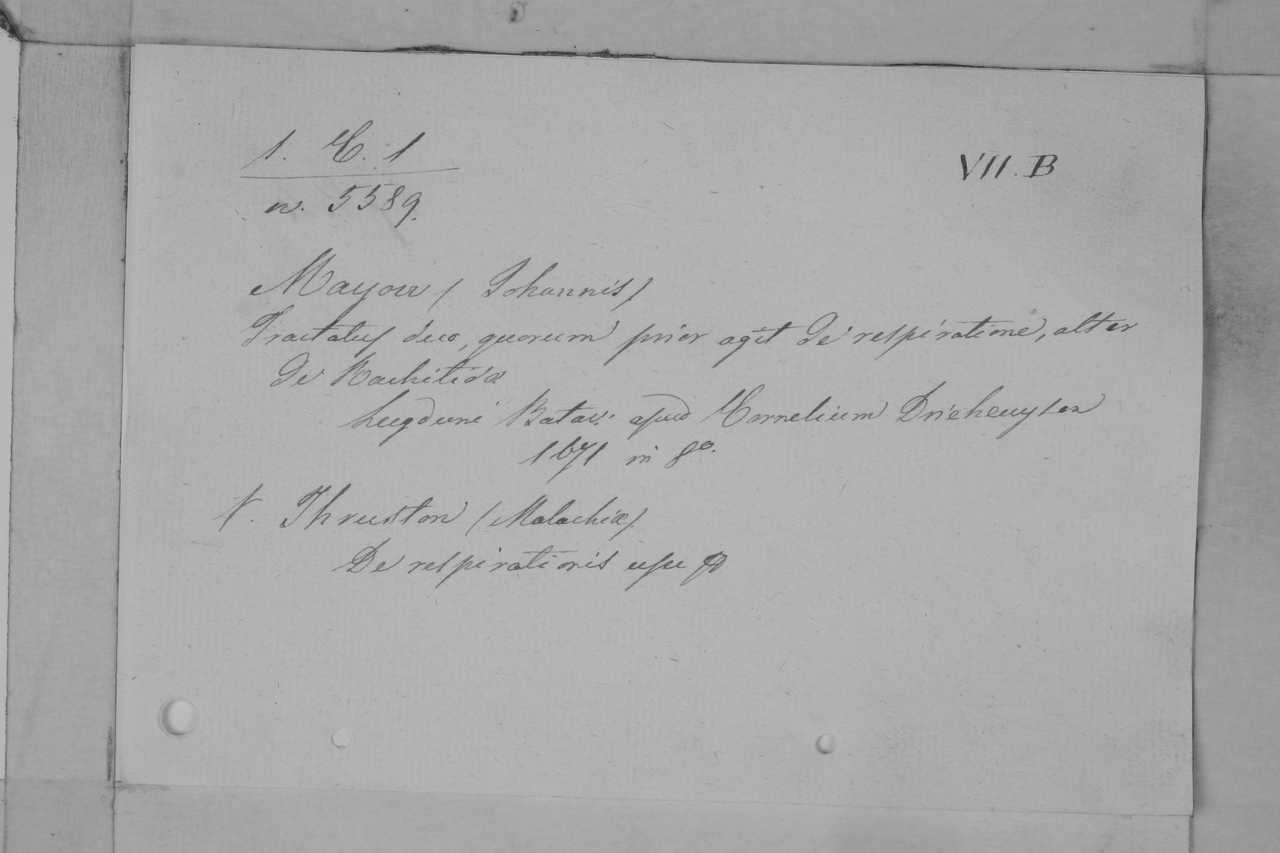 1. E. 1
VII. B
n. 5589.
Mayow (Johannis)
Tractatus duo, quorum prior agit de respiratione, alter
de Rachitide
Lugduni Batav. apud Cornelium Driehuysen
1671 in 8º.
V. Thruston (Malachiæ)
De respirationis usu